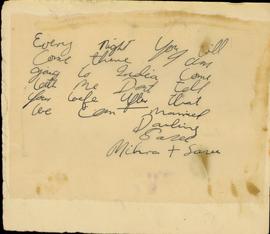 Every night you will
Come there I am
going to India Come
with Me Dont tell
your wife After that
we Can Married
Darling